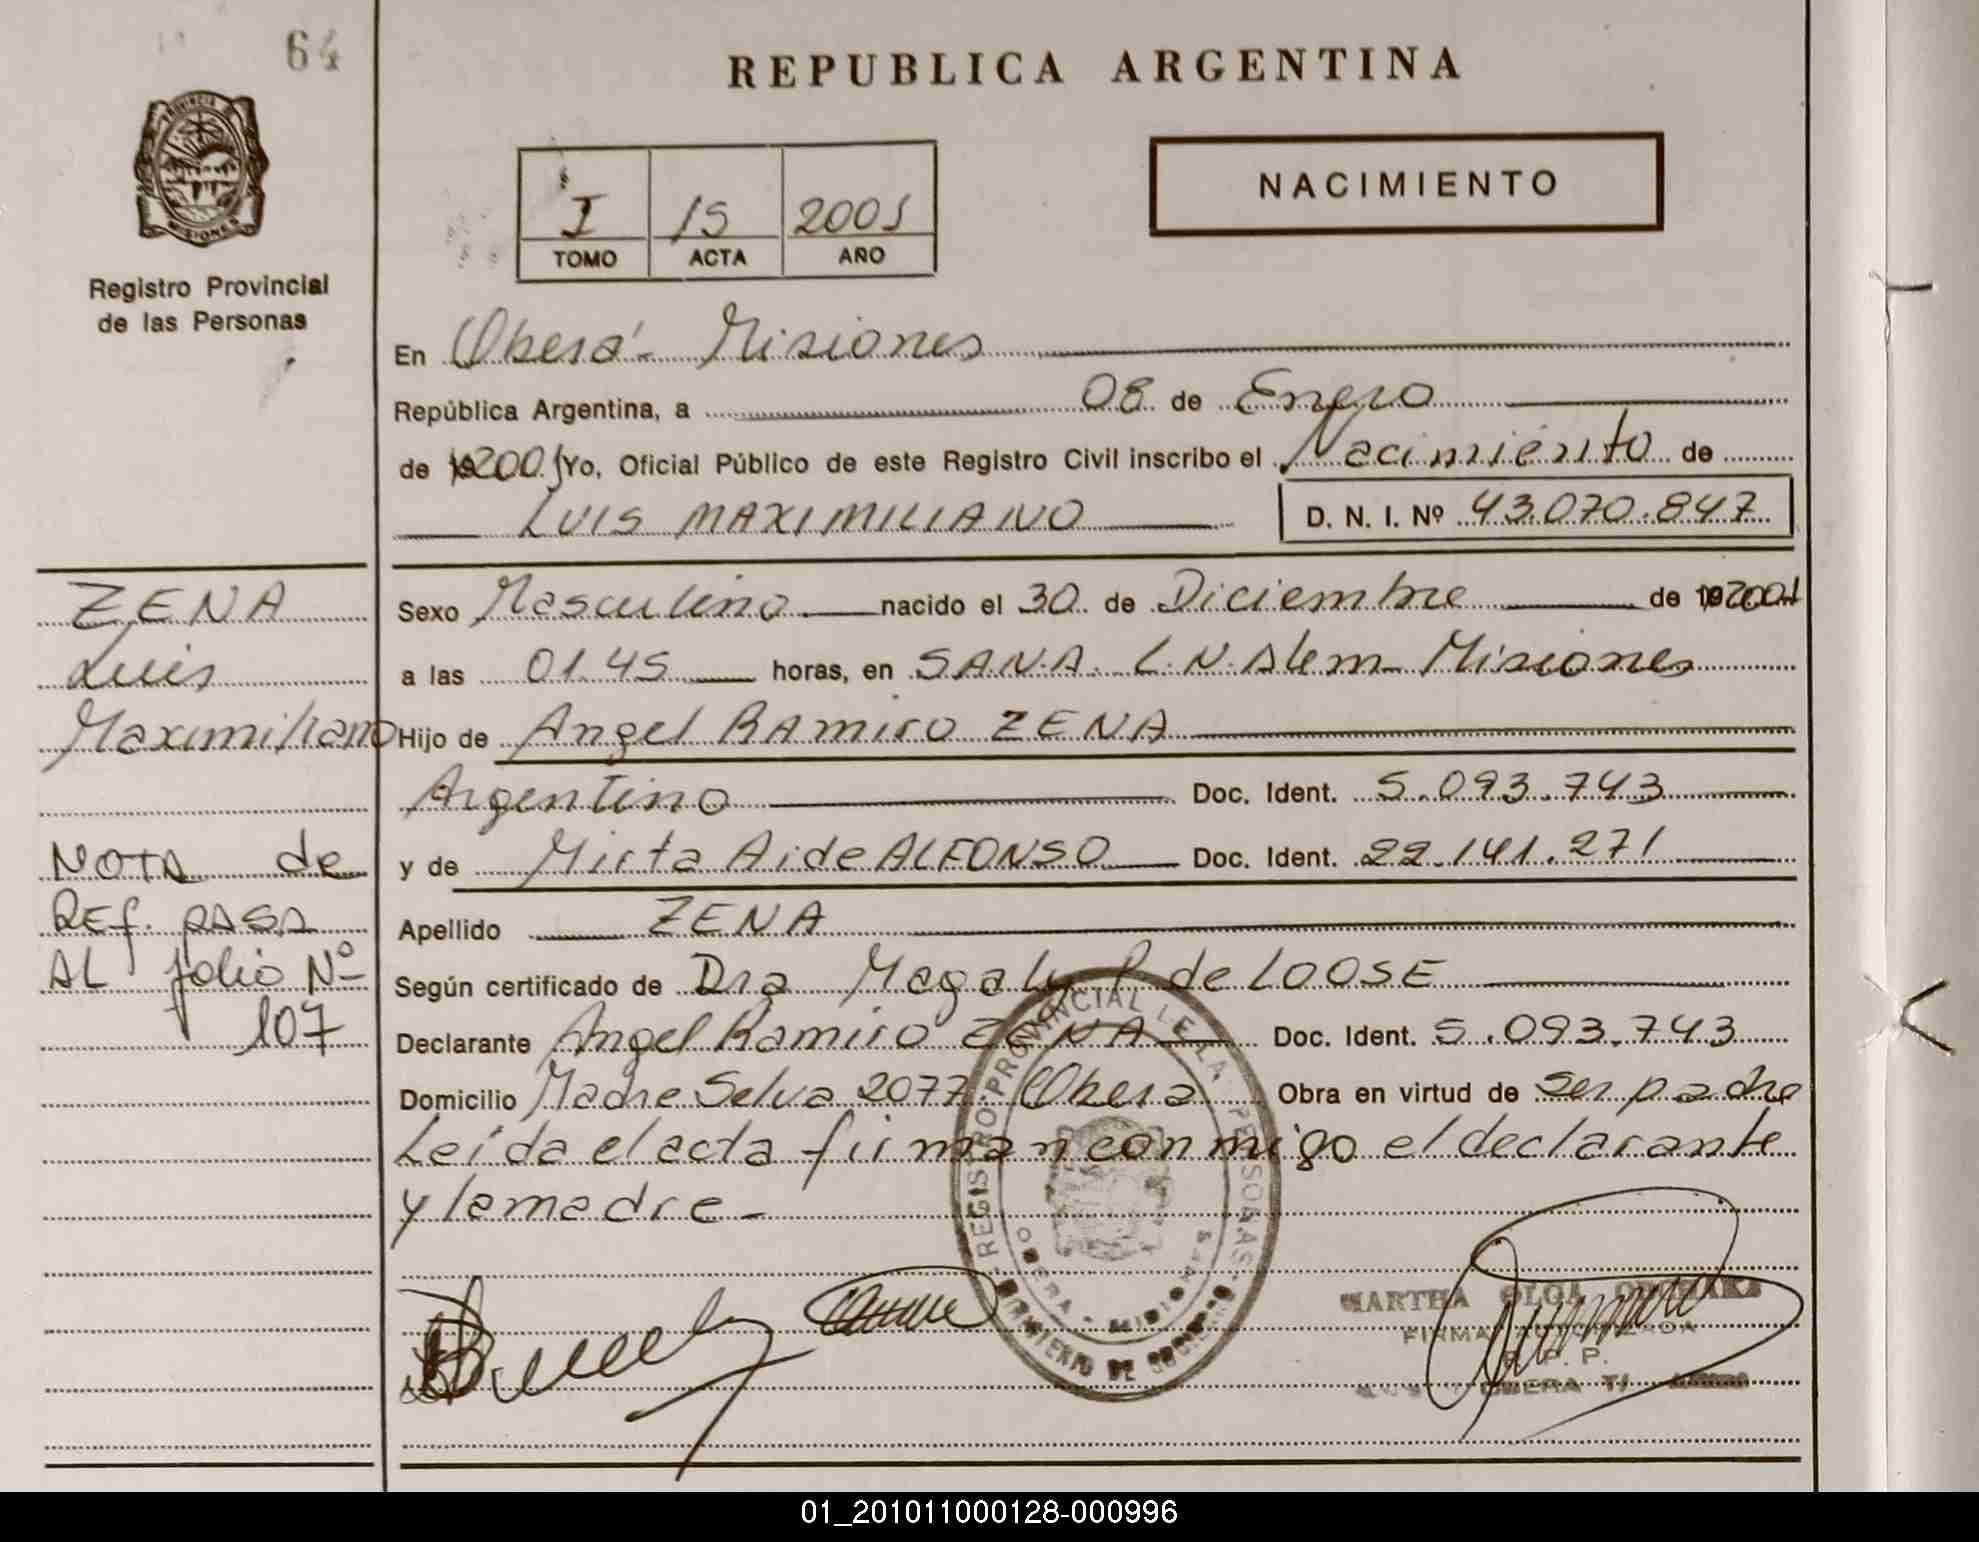 64
REPUBLICA ARGENTINA
PROVINCIA
MISIONES
Registro Provincial
de las Personas
I 15 2001
TOMO ACTA AÑO
NACIMIENTO
En Oberá - Misiones
República Argentina, a 08 de Enero
de 19 2001 Yo, Oficial Público de este Registro Civil inscribo el Nacimiento de
LUIS MAXIMILIANO D. N. I. Nº 43.070.847
ZENA
Luis
Maximiliano
NOTA de
REf. PASA
AL folio Nº
107
Sexo Masculino nacido el 30 de Diciembre de 19 2001
a las 01.45 horas, en S.A.N.A. L.N.Alem Misiones
Hijo de Angel RAmiro ZENA
Argentino Doc. Ident. 5.093.743
y de Mirta Aide ALFONSO Doc. Ident. 22.141.271
Apellido ZENA
Según certificado de Dra Magaly P. de LOOSE
Declarante Angel Ramiro ZENA Doc. Ident. 5.093.743
Domicilio Madre Selva 2077 Obera Obra en virtud de ser padre
Leída el acta firman conmigo el declarante
y la madre -
REGISTRO PROVINCIAL DE LAS PERSONAS
OBERA - MISIONES
MINISTERIO DE GOBIERNO
MARTHA OLGA
FIRMA AUTORIZADA
R. P. P.
OBERA
01_201011000128-000996